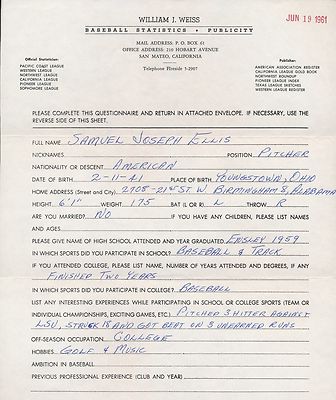 WILLIAM J. WEISS
BASEBALL STATISTICS • PUBLICITY
JUN 19 1961
MAIL ADDRESS: P. O. BOX 61
OFFICE ADDRESS: 210 HOBART AVENUE
SAN MATEO, CALIFORNIA
Telephone Fireside 5-2907
Official Statistician:
PACIFIC COAST LEAGUE
WESTERN LEAGUE
NORTHWEST LEAGUE
CALIFORNIA LEAGUE
PIONEER LEAGUE
SOPHOMORE LEAGUE
Publisher:
AMERICAN ASSOCIATION REGISTER
CALIFORNIA LEAGUE GOLD BOOK
NORTHWEST ROUNDUP
PIONEER LEAGUE INDEX
TEXAS LEAGUE SKETCHES
WESTERN LEAGUE REGISTER
PLEASE COMPLETE THIS QUESTIONNAIRE AND RETURN IN ATTACHED ENVELOPE. IF NECESSARY, USE THE
REVERSE SIDE OF THIS SHEET.
FULL NAME SAMUEL JOSEPH ELLIS
NICKNAMES POSITION PITCHER
NATIONALITY OR DESCENT AMERICAN
DATE OF BIRTH 2-11-41 PLACE OF BIRTH YOUNGSTOWN, OHIO
HOME ADDRESS (Street and City) 2708-21st ST W BIRMINGHAM 8, ALABAMA
HEIGHT 6'1" WEIGHT 175 BAT (L OR R) L THROW R
ARE YOU MARRIED? NO IF YOU HAVE ANY CHILDREN, PLEASE LIST NAMES
AND AGES
PLEASE GIVE NAME OF HIGH SCHOOL ATTENDED AND YEAR GRADUATED ENSLEY 1959
IN WHICH SPORTS DID YOU PARTICIPATE IN SCHOOL? BASEBALL & TRACK
IF YOU ATTENDED COLLEGE, PLEASE LIST NAME, NUMBER OF YEARS ATTENDED AND DEGREES, IF ANY
FINISHED TWO YEARS
IN WHICH SPORTS DID YOU PARTICIPATE IN COLLEGE? BASEBALL
LIST ANY INTERESTING EXPERIENCES WHILE PARTICIPATING IN SCHOOL OR COLLEGE SPORTS (TEAM OR
INDIVIDUAL CHAMPIONSHIPS, EXCITING GAMES, ETC.) PITCHED 3 HITTER AGAINST
LSU, STRUCK 18 AND GOT BEAT ON 3 UNEARNED RUNS
OFF-SEASON OCCUPATION COLLEGE
HOBBIES GOLF & MUSIC
AMBITION IN BASEBALL
PREVIOUS PROFESSIONAL EXPERIENCE (CLUB AND YEAR)